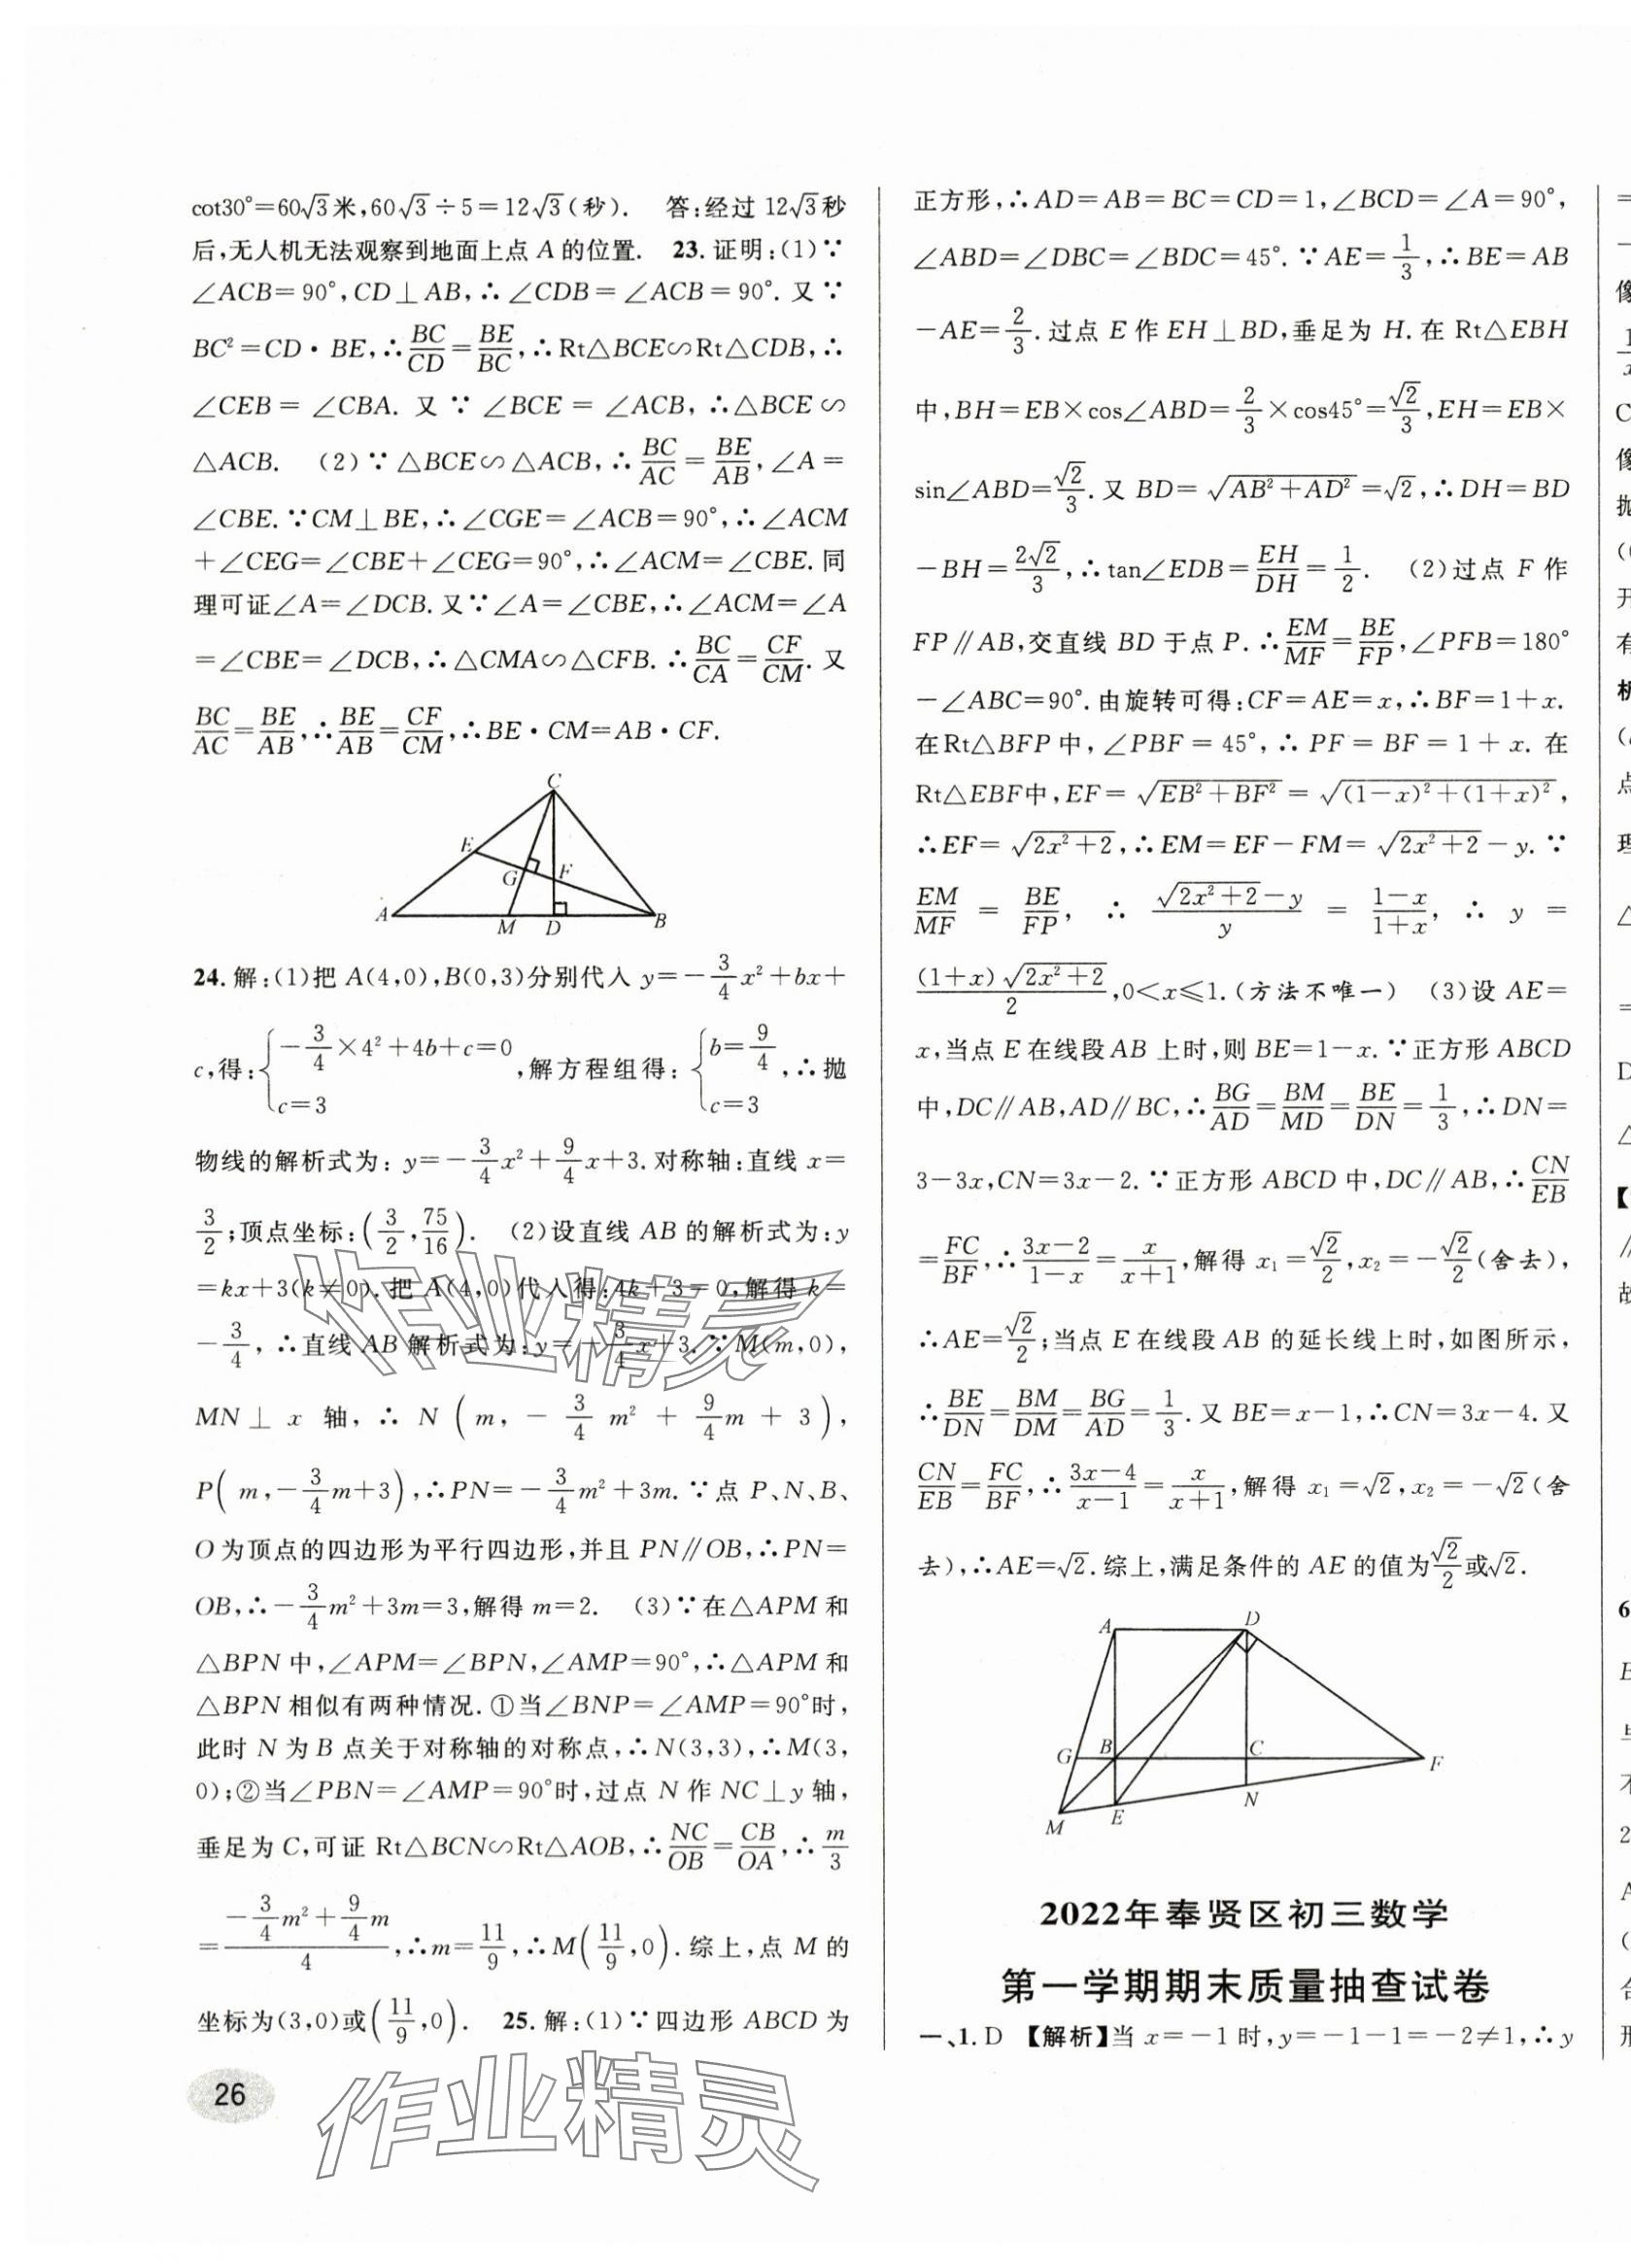 cot30°=60√3米,60√3÷5=12√3(秒). 答:经过12√3秒
后,无人机无法观察到地面上点A的位置. 23.证明:(1)∵
∠ACB=90°,CD⊥AB,∴∠CDB=∠ACB=90°.又∵
BC²=CD·BE,∴BC/CD=BE/BC,∴Rt△BCE∽Rt△CDB,∴
∠CEB=∠CBA.又∵∠BCE=∠ACB,∴△BCE∽
△ACB. (2)∵△BCE∽△ACB,∴BC/AC=BE/AB,∠A=
∠CBE.∵CM⊥BE,∴∠CGE=∠ACB=90°,∴∠ACM
+∠CEG=∠CBE+∠CEG=90°,∴∠ACM=∠CBE.同
理可证∠A=∠DCB.又∵∠A=∠CBE,∴∠ACM=∠A
=∠CBE=∠DCB,∴△CMA∽△CFB.∴BC/CA=CF/CM.又
BC/AC=BE/AB,∴BE/AB=CF/CM,∴BE·CM=AB·CF.
C
E
G
F
A
M
D
B
24.解:(1)把A(4,0),B(0,3)分别代入y=-3/4x²+bx+
c,得:{-3/4×4²+4b+c=0 c=3,解方程组得:{b=9/4 c=3,∴抛
物线的解析式为:y=-3/4x²+9/4x+3.对称轴:直线x=
3/2;顶点坐标:(3/2,75/16). (2)设直线AB的解析式为:y
=kx+3(k≠0).把A(4,0)代入得:4k+3=0,解得k=
-3/4,∴直线AB解析式为:y=-3/4x+3.∵M(m,0),
MN⊥x轴,∴N(m,-3/4m²+9/4m+3),
P(m,-3/4m+3),∴PN=-3/4m²+3m.∵点P、N、B、
O为顶点的四边形为平行四边形,并且PN∥OB,∴PN=
OB,∴-3/4m²+3m=3,解得m=2. (3)∵在△APM和
△BPN中,∠APM=∠BPN,∠AMP=90°,∴△APM和
△BPN相似有两种情况.①当∠BNP=∠AMP=90°时,
此时N为B点关于对称轴的对称点,∴N(3,3),∴M(3,
0);②当∠PBN=∠AMP=90°时,过点N作NC⊥y轴,
垂足为C,可证Rt△BCN∽Rt△AOB,∴NC/OB=CB/OA,∴m/3
=(-3/4m²+9/4m)/4,∴m=11/9,∴M(11/9,0).综上,点M的
坐标为(3,0)或(11/9,0). 25.解:(1)∵四边形ABCD为
26
正方形,∴AD=AB=BC=CD=1,∠BCD=∠A=90°,
∠ABD=∠DBC=∠BDC=45°.∵AE=1/3,∴BE=AB
-AE=2/3.过点E作EH⊥BD,垂足为H.在Rt△EBH
中,BH=EB×cos∠ABD=2/3×cos45°=√2/3,EH=EB×
sin∠ABD=√2/3.又BD=√(AB²+AD²)=√2,∴DH=BD
-BH=2√2/3,∴tan∠EDB=EH/DH=1/2. (2)过点F作
FP∥AB,交直线BD于点P.∴EM/MF=BE/FP,∠PFB=180°
-∠ABC=90°.由旋转可得:CF=AE=x,∴BF=1+x.
在Rt△BFP中,∠PBF=45°,∴PF=BF=1+x.在
Rt△EBF中,EF=√(EB²+BF²)=√((1-x)²+(1+x)²),
∴EF=√(2x²+2),∴EM=EF-FM=√(2x²+2)-y.∵
EM/MF=BE/FP,∴(√(2x²+2)-y)/y=(1-x)/(1+x),∴y=
(1+x)√(2x²+2)/2,0<x≤1.(方法不唯一) (3)设AE=
x,当点E在线段AB上时,则BE=1-x.∵正方形ABCD
中,DC∥AB,AD∥BC,∴BG/AD=BM/MD=BE/DN=1/3,∴DN=
3-3x,CN=3x-2.∵正方形ABCD中,DC∥AB,∴CN/EB
=FC/BF,∴(3x-2)/(1-x)=x/(x+1),解得x₁=√2/2,x₂=-√2/2(舍去),
∴AE=√2/2;当点E在线段AB的延长线上时,如图所示,
∴BE/DN=BM/DM=BG/AD=1/3.又BE=x-1,∴CN=3x-4.又
CN/EB=FC/BF,∴(3x-4)/(x-1)=x/(x+1),解得x₁=√2,x₂=-√2(舍
去),∴AE=√2.综上,满足条件的AE的值为√2/2或√2.
A
D
G
B
C
F
M
E
N
2022年奉贤区初三数学
第一学期期末质量抽查试卷
一、1.D 【解析】当x=-1时,y=-1-1=-2≠1,∴y
作业精灵
作业精灵